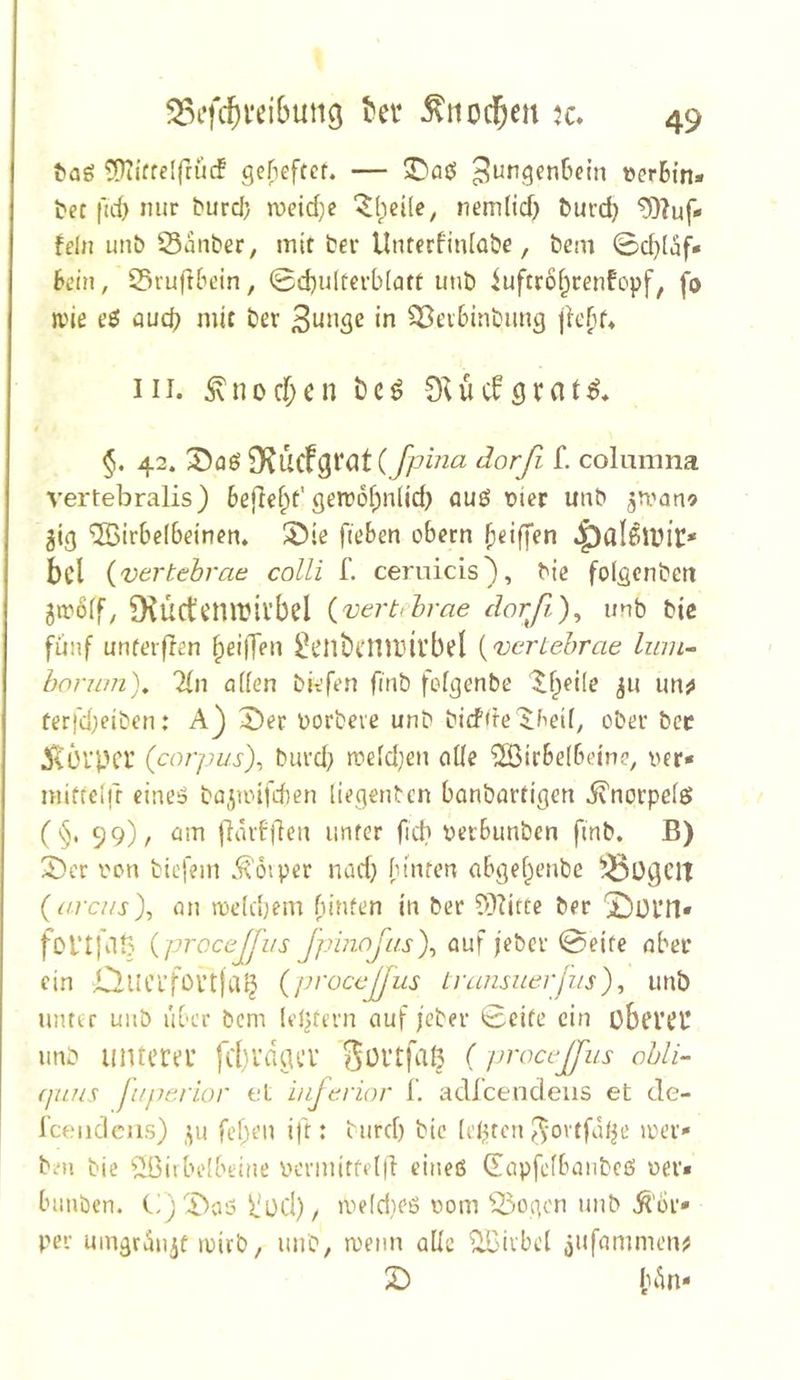 Beschreibung der Knochen ꝛc. 49
das Mittelstück geheftet. — Das Zungenbein verbin-
det sich nur durch weiche Theile, nemlich durch Mus-
keln und Bänder, mit der Unterkinlade, dem Schläf-
bein, Brustbein, Schulterblatt und Luftröhrenkopf, so
wie es auch mit der Zunge in Verbindung steht.
III. Knochen des Rückgrats.
§. 42. Das Rückgrat (spina dorsi s. columna
vertebralis) besteht gewöhnlich aus vier und zwan-
zig Wirbelbeinen. Die sieben obern heissen Halswir-
bel (vertebrae colli s. ceruicis), die folgenden
zwölf, Rückenwirbel (vertebrae dorsi), und die
fünf untersten heissen Lendenwirbel (vertebrae lum-
borum). An allen diesen sind folgende Theile zu un-
terscheiden: A) Der vordere und dickste Theil, oder der
Körper (corpus), durch welchen alle Wirbelbeine, ver-
mittelst eines dazwischen liegenden bandartigen Knorpels
(§. 99), am stärksten unter sich verbunden sind. B)
Der von diesem Körper nach hinten abgehende Bogen
(arcus), an welchem hinten in der Mitte der Dorn-
fortsatz (processus spinosus), auf jeder Seite aber
ein Querfortsatz (processus transuersus), und
unter und über dem letztern auf jeder Seite ein oberer
und unterer schräger Fortsatz (processus obli-
quus superior et inferior s. adscendens et de-
scendens) zu sehen ist: durch die letzten Fortsätze wer-
den die Wirbelbeine vermittelst eines Capselbandes ver-
bunden. C) Das Loch, welches vom Bogen und Kör-
per umgränzt wird, und, wenn alle Wirbel zusammen-
D hän-